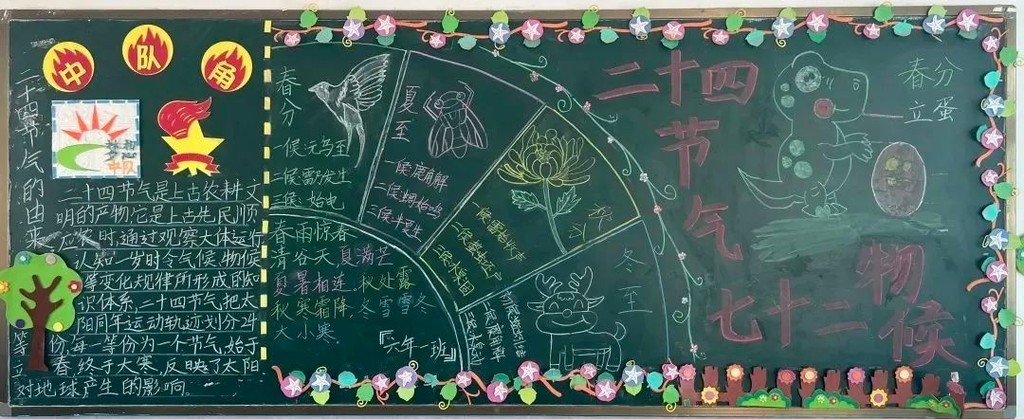 中队角
二十四节气的由来
二十四节气是上古农耕文
明的产物,它是上古先民顺
应农时,通过观察天体运行
认知一岁时令气候、物候
等变化规律所形成的知
识体系,二十四节气把太
阳周年运动轨迹划分24
等份,每一等份为一个节气,始于
立春,终于大寒,反映了太阳
对地球产生的影响
春分
一候元鸟至
二候雷发生
三候始电
夏至
一候鹿角解
二候蜩始鸣
三候半夏生
冬至
春雨惊春
清谷天夏满芒
夏暑相连,秋处露
秋寒霜降,冬雪雪冬
大小寒
『六年一班』
二十四
节气
七十二
物候
春分
立蛋